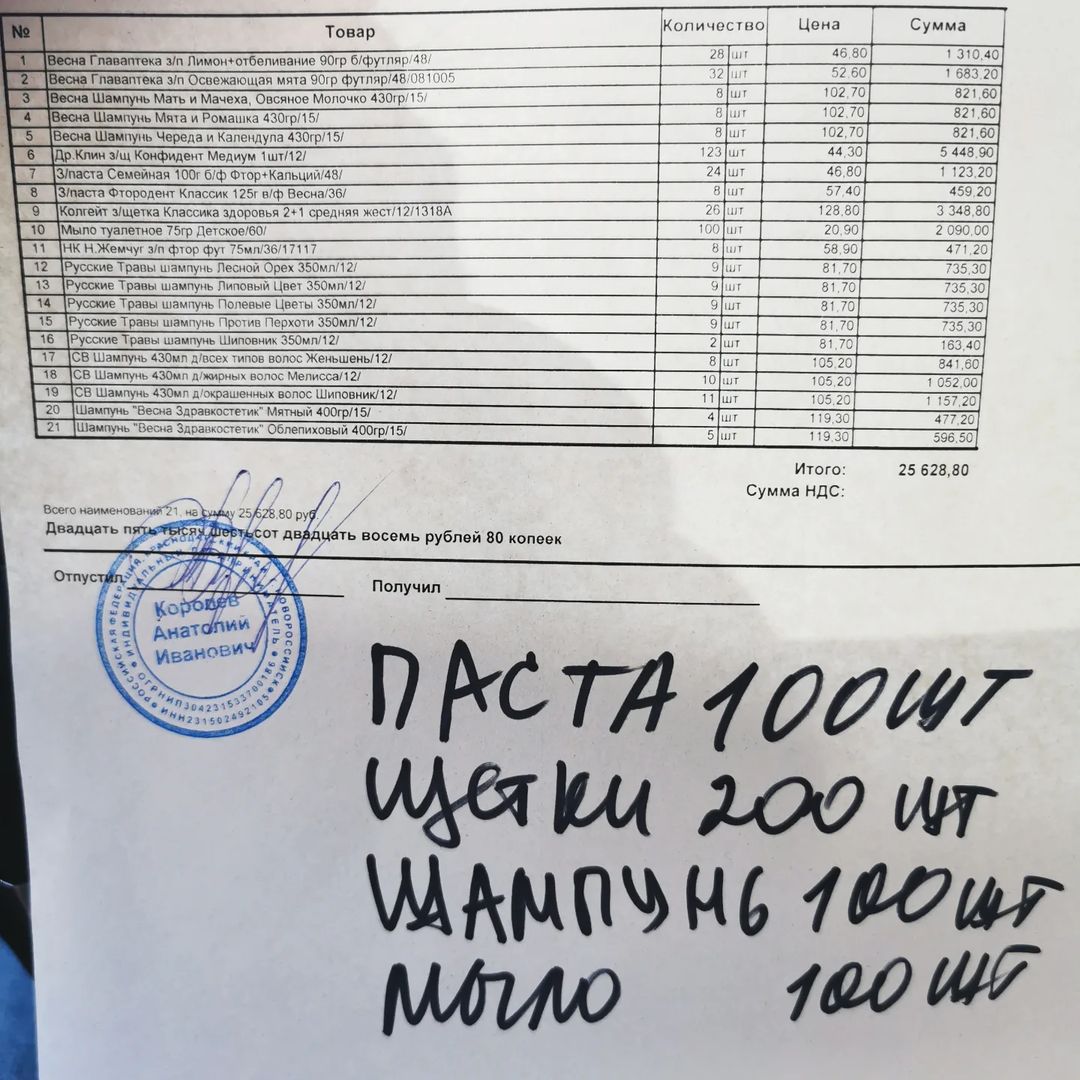 № Товар Количество Цена Сумма
1 Весна Главаптека з/п Лимон+отбеливание 90гр б/футляр/48/ 28 шт 46,80 1 310,40
2 Весна Главаптека з/п Освежающая мята 90гр футляр/48/081005 32 шт 52,60 1 683,20
3 Весна Шампунь Мать и Мачеха, Овсяное Молочко 430гр/15/ 8 шт 102,70 821,60
4 Весна Шампунь Мята и Ромашка 430гр/15/ 8 шт 102,70 821,60
5 Весна Шампунь Череда и Календула 430гр/15/ 8 шт 102,70 821,60
6 Др.Клин з/щ Конфидент Медиум 1шт/12/ 123 шт 44,30 5 448,90
7 З/паста Семейная 100г б/ф Фтор+Кальций/48/ 24 шт 46,80 1 123,20
8 З/паста Фтородент Классик 125г в/ф Весна/36/ 8 шт 57,40 459,20
9 Колгейт з/щетка Классика здоровья 2+1 средняя жест/12/1318А 26 шт 128,80 3 348,80
10 Мыло туалетное 75гр Детское/60/ 100 шт 20,90 2 090,00
11 НК Н.Жемчуг з/п фтор фут 75мл/36/17117 8 шт 58,90 471,20
12 Русские Травы шампунь Лесной Орех 350мл/12/ 9 шт 81,70 735,30
13 Русские Травы шампунь Липовый Цвет 350мл/12/ 9 шт 81,70 735,30
14 Русские Травы шампунь Полевые Цветы 350мл/12/ 9 шт 81,70 735,30
15 Русские Травы шампунь Против Перхоти 350мл/12/ 9 шт 81,70 735,30
16 Русские Травы шампунь Шиповник 350мл/12/ 2 шт 81,70 163,40
17 СВ Шампунь 430мл д/всех типов волос Женьшень/12/ 8 шт 105,20 841,60
18 СВ Шампунь 430мл д/жирных волос Мелисса/12/ 10 шт 105,20 1 052,00
19 СВ Шампунь 430мл д/окрашенных волос Шиповник/12/ 11 шт 105,20 1 157,20
20 Шампунь "Весна Здравкостетик" Мятный 400гр/15/ 4 шт 119,30 477,20
21 Шампунь "Весна Здравкостетик" Облепиховый 400гр/15/ 5 шт 119,30 596,50
Итого: 25 628,80
Сумма НДС:
Всего наименований 21, на сумму 25 628,80 руб.
Двадцать пять тысяч шестьсот двадцать восемь рублей 80 копеек
Отпустил Получил
РОССИЙСКАЯ ФЕДЕРАЦИЯ, КРАСНОДАРСКИЙ КРАЙ, Г. НОВОРОССИЙСК
ИНДИВИДУАЛЬНЫЙ ПРЕДПРИНИМАТЕЛЬ
Королев
Анатолий
Иванович
ОГРНИП304231533700186
ИНН231502492105
ПАСТА 100ШТ
Щетки 200 шт
ШАМПУНЬ 100шт
Мыло 100 шт